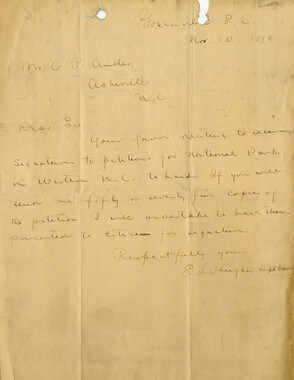 Greenville S.C.
Nov 10. 1899
Mr. C. P. Ambler,
Asheville
N.C.
Dear Sir
Your favor relating to securing
signatures to petitions for National Park
in Western N.C. to hand. If you will
send me fifty or seventy five copies of
the petition I will undertake to have them
presented to citizens for signature.
Respectfully yours
E. L. Hughes